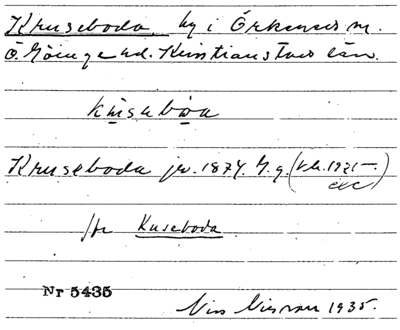 Kruseboda by i Örkeneds sn.
Ö. Göinge hd. Kristianstads län.
kusaboa
Kruseboda jr. 1874. G. g. (kb. 1921– etc)
för Kuseboda
Nr 5435
1935.